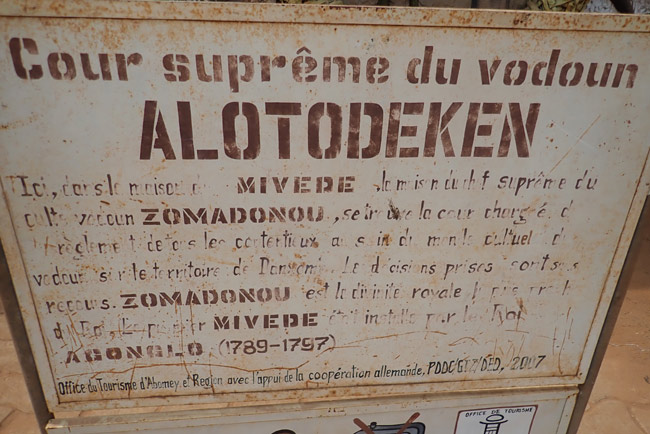 Cour suprême du vodoun
ALOTODEKEN
Ici, dans la maison du MIVEDE, la maison du chef suprême du
culte vodoun ZOMADONOU, se trouve la cour chargée d
règlement de tous les contentieux au sein du monde cultuel d
vodoun sur le territoire de Danxomè. Le décisions prises sont sans
recours. ZOMADONOU est la divinité royale
du Roi, Le premier MIVEDE était installé par le Roi
AGONGLO (1789-1797)
Office du Tourisme d'Abomey et Région avec l'appui de la coopération allemande, PDDC/GTZ/DED, 2007
OFFICE DE TOURISME